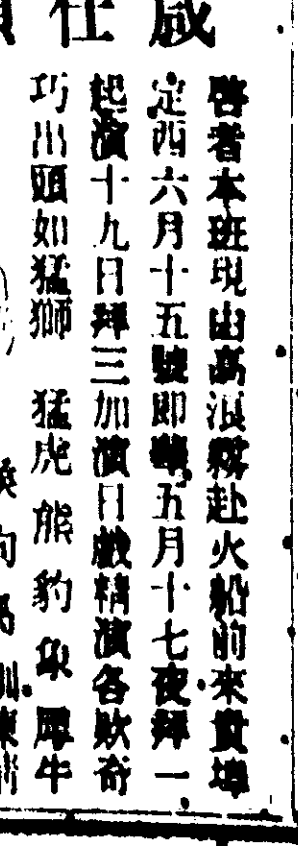 啓者本班現由高浪霧赴火船前來貴埠
定西六月十五號即華五月十七夜拜一
起演十九日拜三加演日戲精演各欵奇
巧出頭如猛獅猛虎熊豹象犀牛